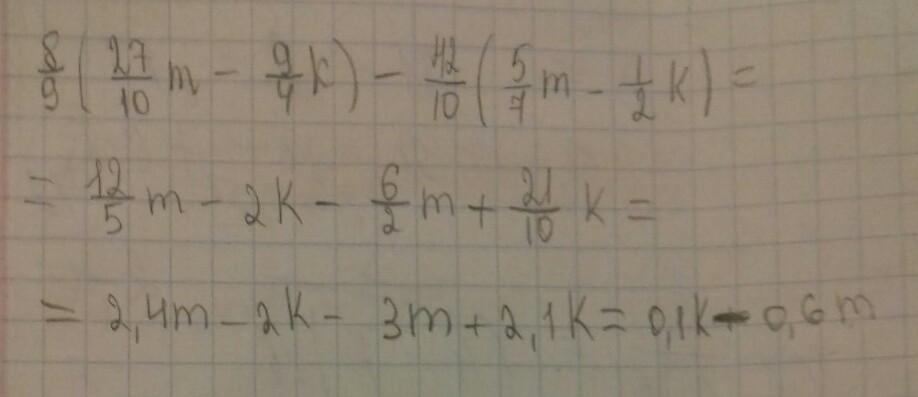 8/9 (27/10 m - 9/4 k) - 42/10 (5/7 m - 1/2 k) =
= 12/5 m - 2k - 6/2 m + 21/10 k =
= 2,4m - 2k - 3m + 2,1k = 0,1k - 0,6m